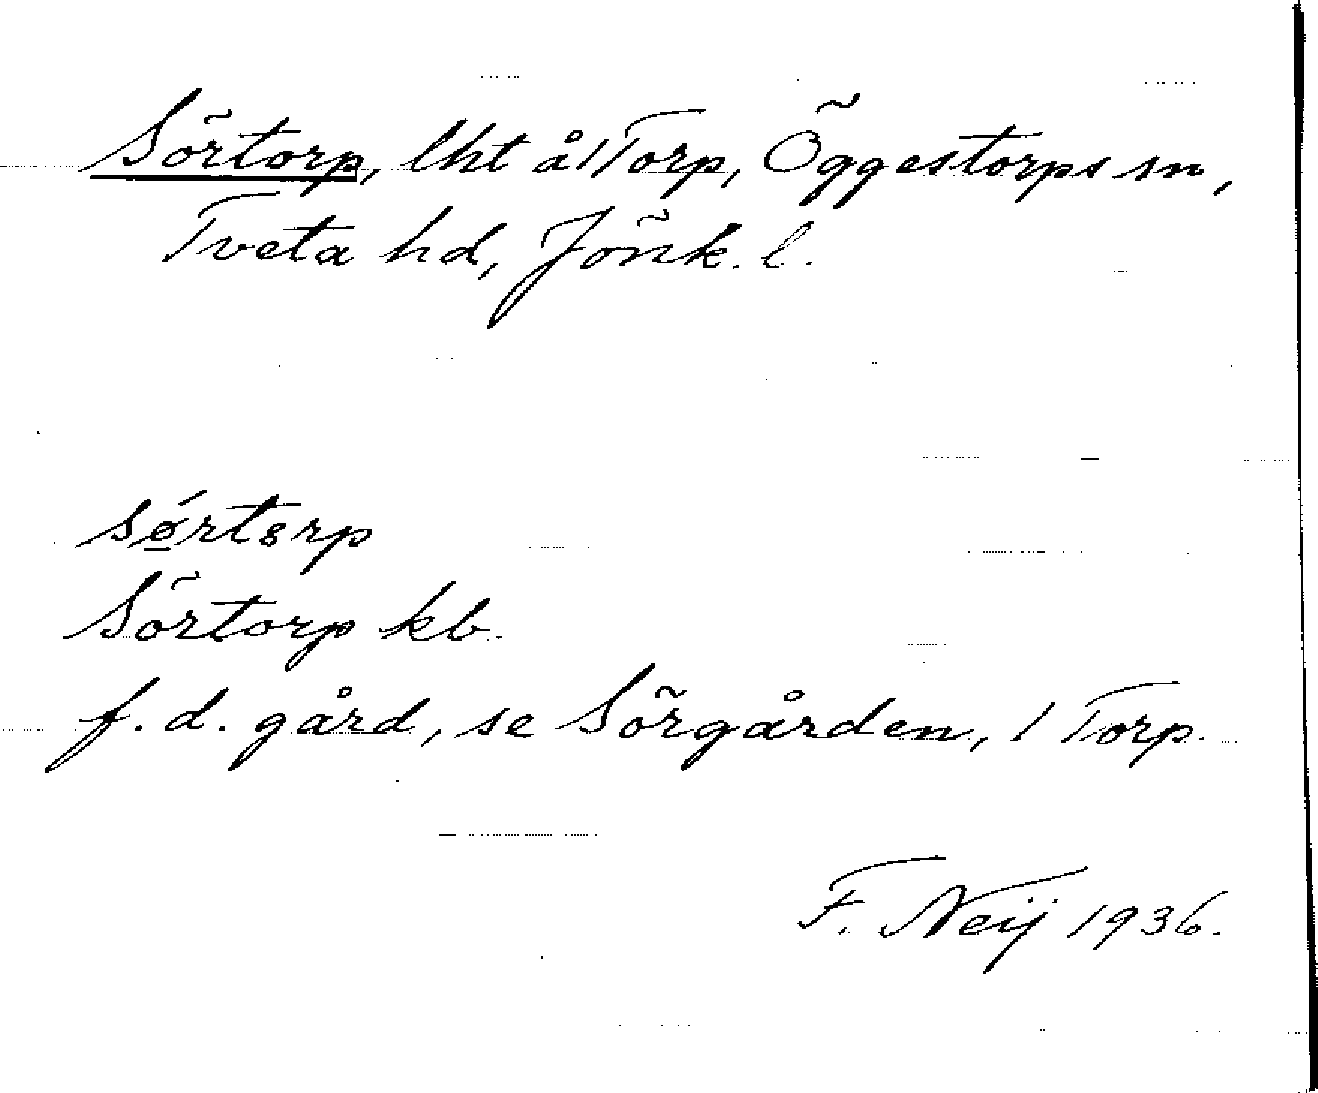 Sörtorp, lht å 1 Torp, Öggestorps sn,
Tveta hd, Jönk. l.
sǿ̱rtɐrp
Sörtorp kb.
f. d. gård, se Sörgården, 1 Torp.
F. Neij 1936.